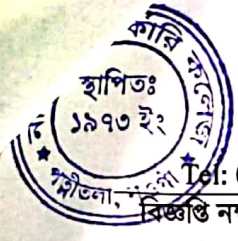 কারি কলেজ
স্থাপিতঃ
১৯৭৩ ইং
পত্নীতলা,
Tel: (
বিজ্ঞপ্তি নম্